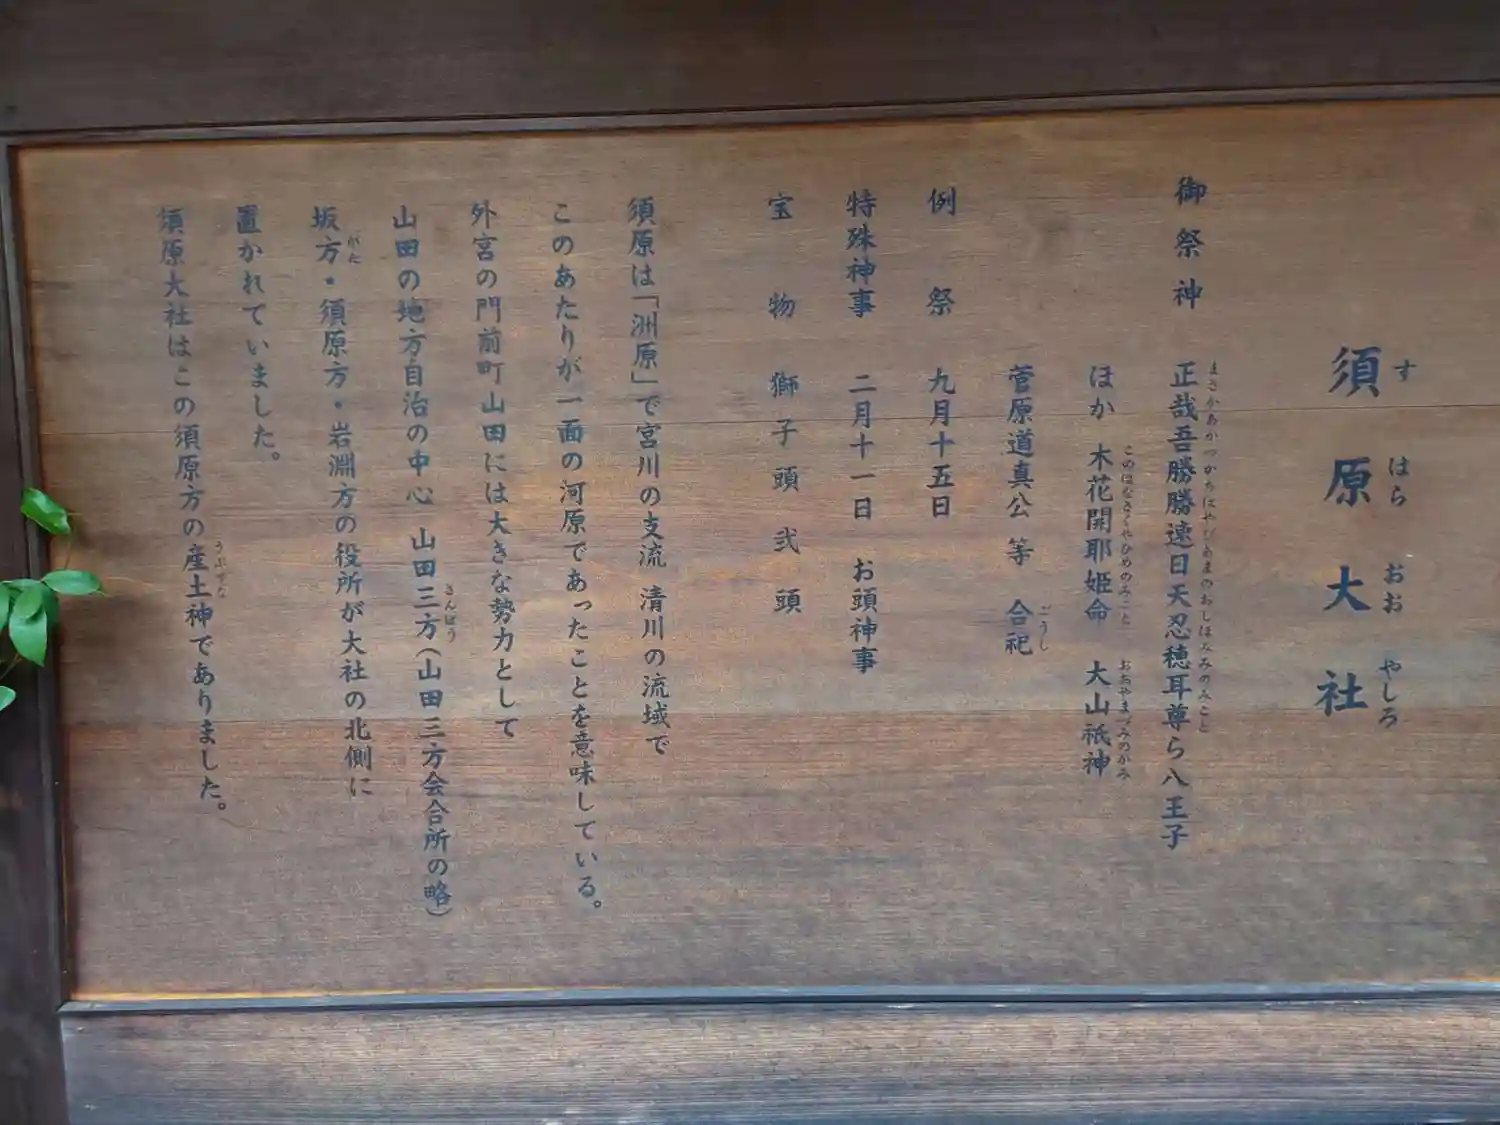 須原大社
すはらおおやしろ
御祭神 正哉吾勝勝速日天忍穂耳尊ら八王子
まさかあかつかちはやびあまのおしほみみのみこと
ほか 木花開耶姫命 大山祇神
このはなさくやひめのみこと おおやまづみのかみ
菅原道真公 等 合祀
ごうし
例祭 九月十五日
特殊神事 二月十一日 お頭神事
宝物 獅子頭 弐頭
須原は「洲原」で宮川の支流 清川の流域で
このあたりが一面の河原であったことを意味している。
外宮の門前町山田には大きな勢力として
山田の地方自治の中心 山田三方(山田三方会合所の略)
さんぼう
坂方・須原方・岩淵方の役所が大社の北側に
がた
置かれていました。
須原大社はこの須原方の産土神でありました。
うぶすな